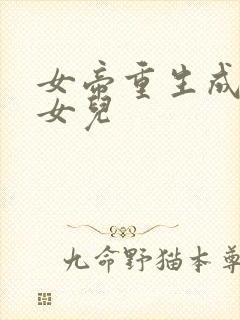 女帝重生成
女兒
九命野猫本尊